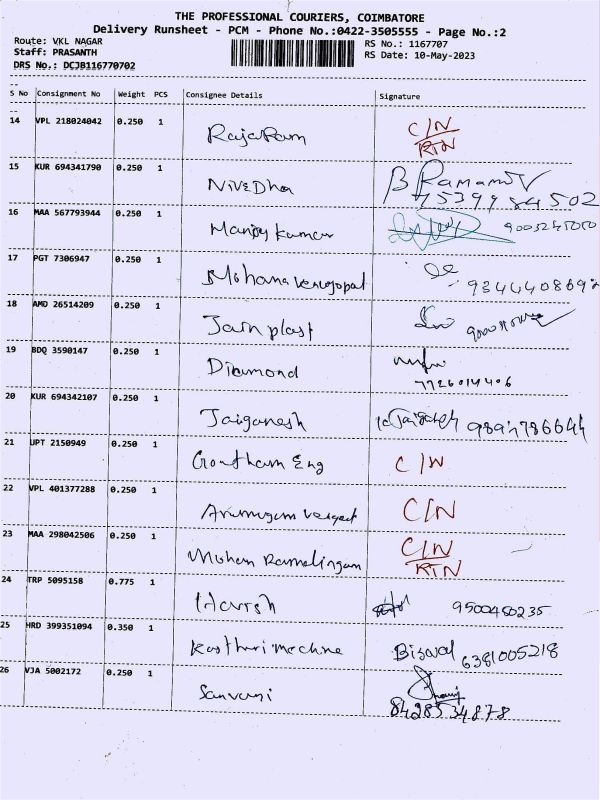 THE PROFESSIONAL COURIERS, COIMBATORE
Delivery Runsheet - PCM - Phone No.:0422-3505555 - Page No.:2
Route: VKL NAGAR RS No.: 1167707
Staff: PRASANTH RS Date: 10-May-2023
DRS No,: DCJB116770702
S No Consignment No Weight PCS Consignee Details Signature
14 VPL 218024042 0.250 1 RajaRam C/N
RTN
15 KUR 694341790 0.250 1 NiveDha B Ramam
7539984502
16 MAA 567793944 0.250 1 Manjykumar
17 PGT 7306947 0.250 1 Mohanavenugopal
18 AMD 26514209 0.250 1 Jain plast
19 BDQ 3590147 0.250 1 Diamond
7726014406
20 KUR 694342107 0.250 1 Jaiganesh
21 UPT 2150949 0.250 1 Goutham Eng C/N
22 VPL 401377288 0.250 1 Arumugam C/N
23 MAA 298042506 0.250 1 Mohan Ramalingam C/N
RTN
24 TRP 5095158 0.775 1 Harish 9500450235
25 HRD 399351094 0.350 1 Kasthuri mechine 6381005218
26 VJA 5002172 0.250 1
8428534878